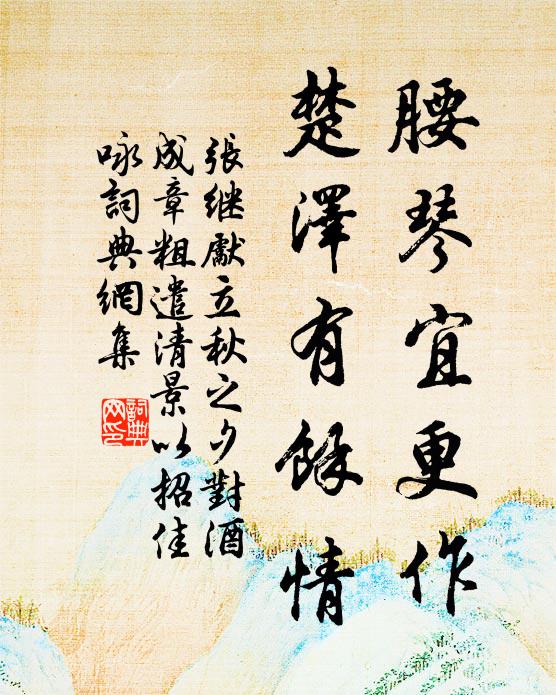 腰琴宜更作
楚澤有餘情
張继獻立秋之夕對酒
成章粗遣清景以招佳
咏詞典網集
詞典
网印